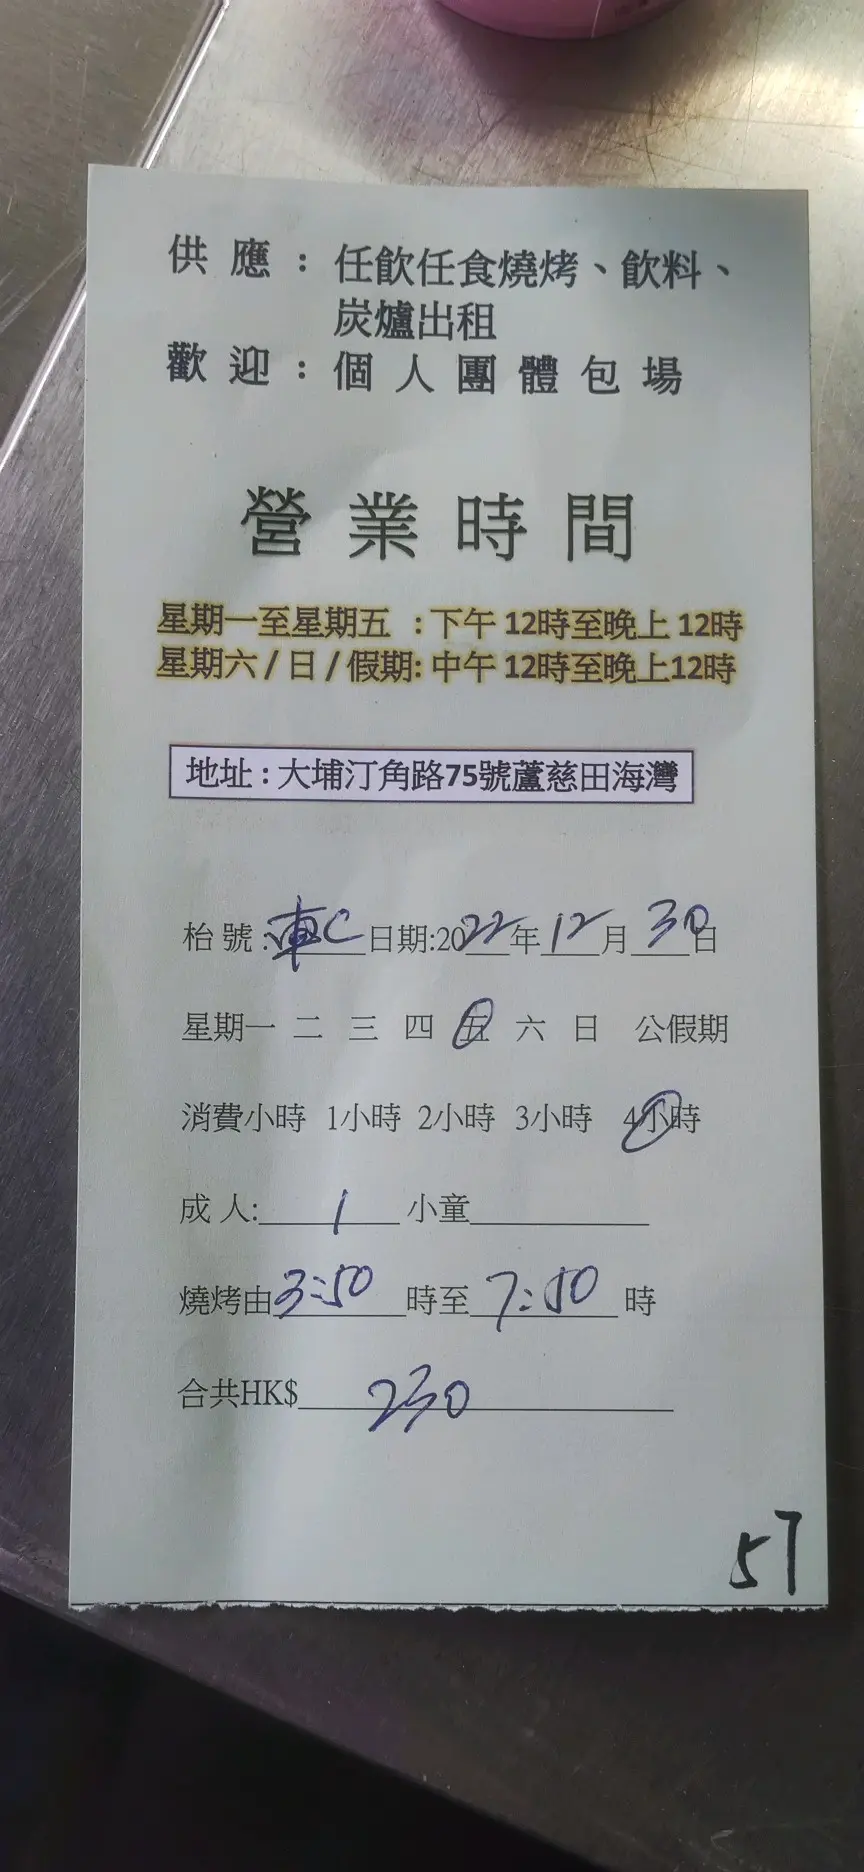 供 應 : 任飲任食燒烤、飲料、
炭爐出租
歡 迎 : 個 人 團 體 包 場
營 業 時 間
星期一至星期五 : 下午 12時至晚上 12時
星期六 / 日 / 假期: 中午 12時至晚上12時
地址 : 大埔汀角路75號蘆慈田海灣
枱 號 : C 日期:2022年12月30日
星期一 二 三 四 五 六 日 公假期
消費小時 1小時 2小時 3小時 4小時
成 人: 1 小童
燒烤由3:50時至7:50時
合共HK$230
57